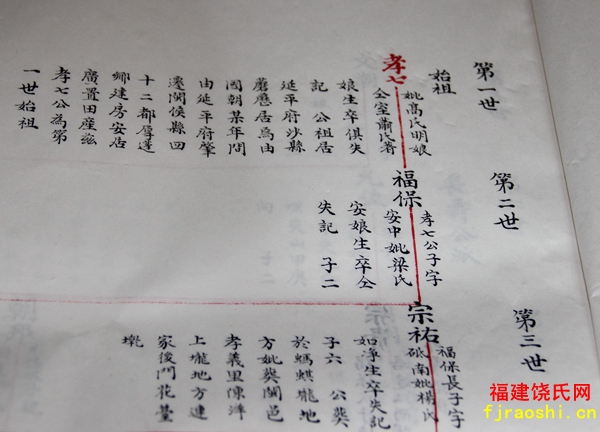 第一世
始祖
孝七
妣高氏明娘
仝室蕭氏壽
娘生卒俱失
記 公祖居
延平府沙縣
蘑應居焉由
國朝某年間
由延平府肇
遷閩侯縣四
十二都厚逢
鄉建房安居
廣置田産兹
孝七公為第
一世始祖
第二世
福保
孝七公子字
安中妣梁氏
安娘生卒仝
失記 子二
第三世
宗祐
福保長子字
砥南妣楊氏
如淨生卒失記
子六 公葬
於螞蜞壠地
方妣葬閩邑
孝義里陳洋
上壠地方連
家後門花臺
墘
福建饶氏网
fjraoshi.cn